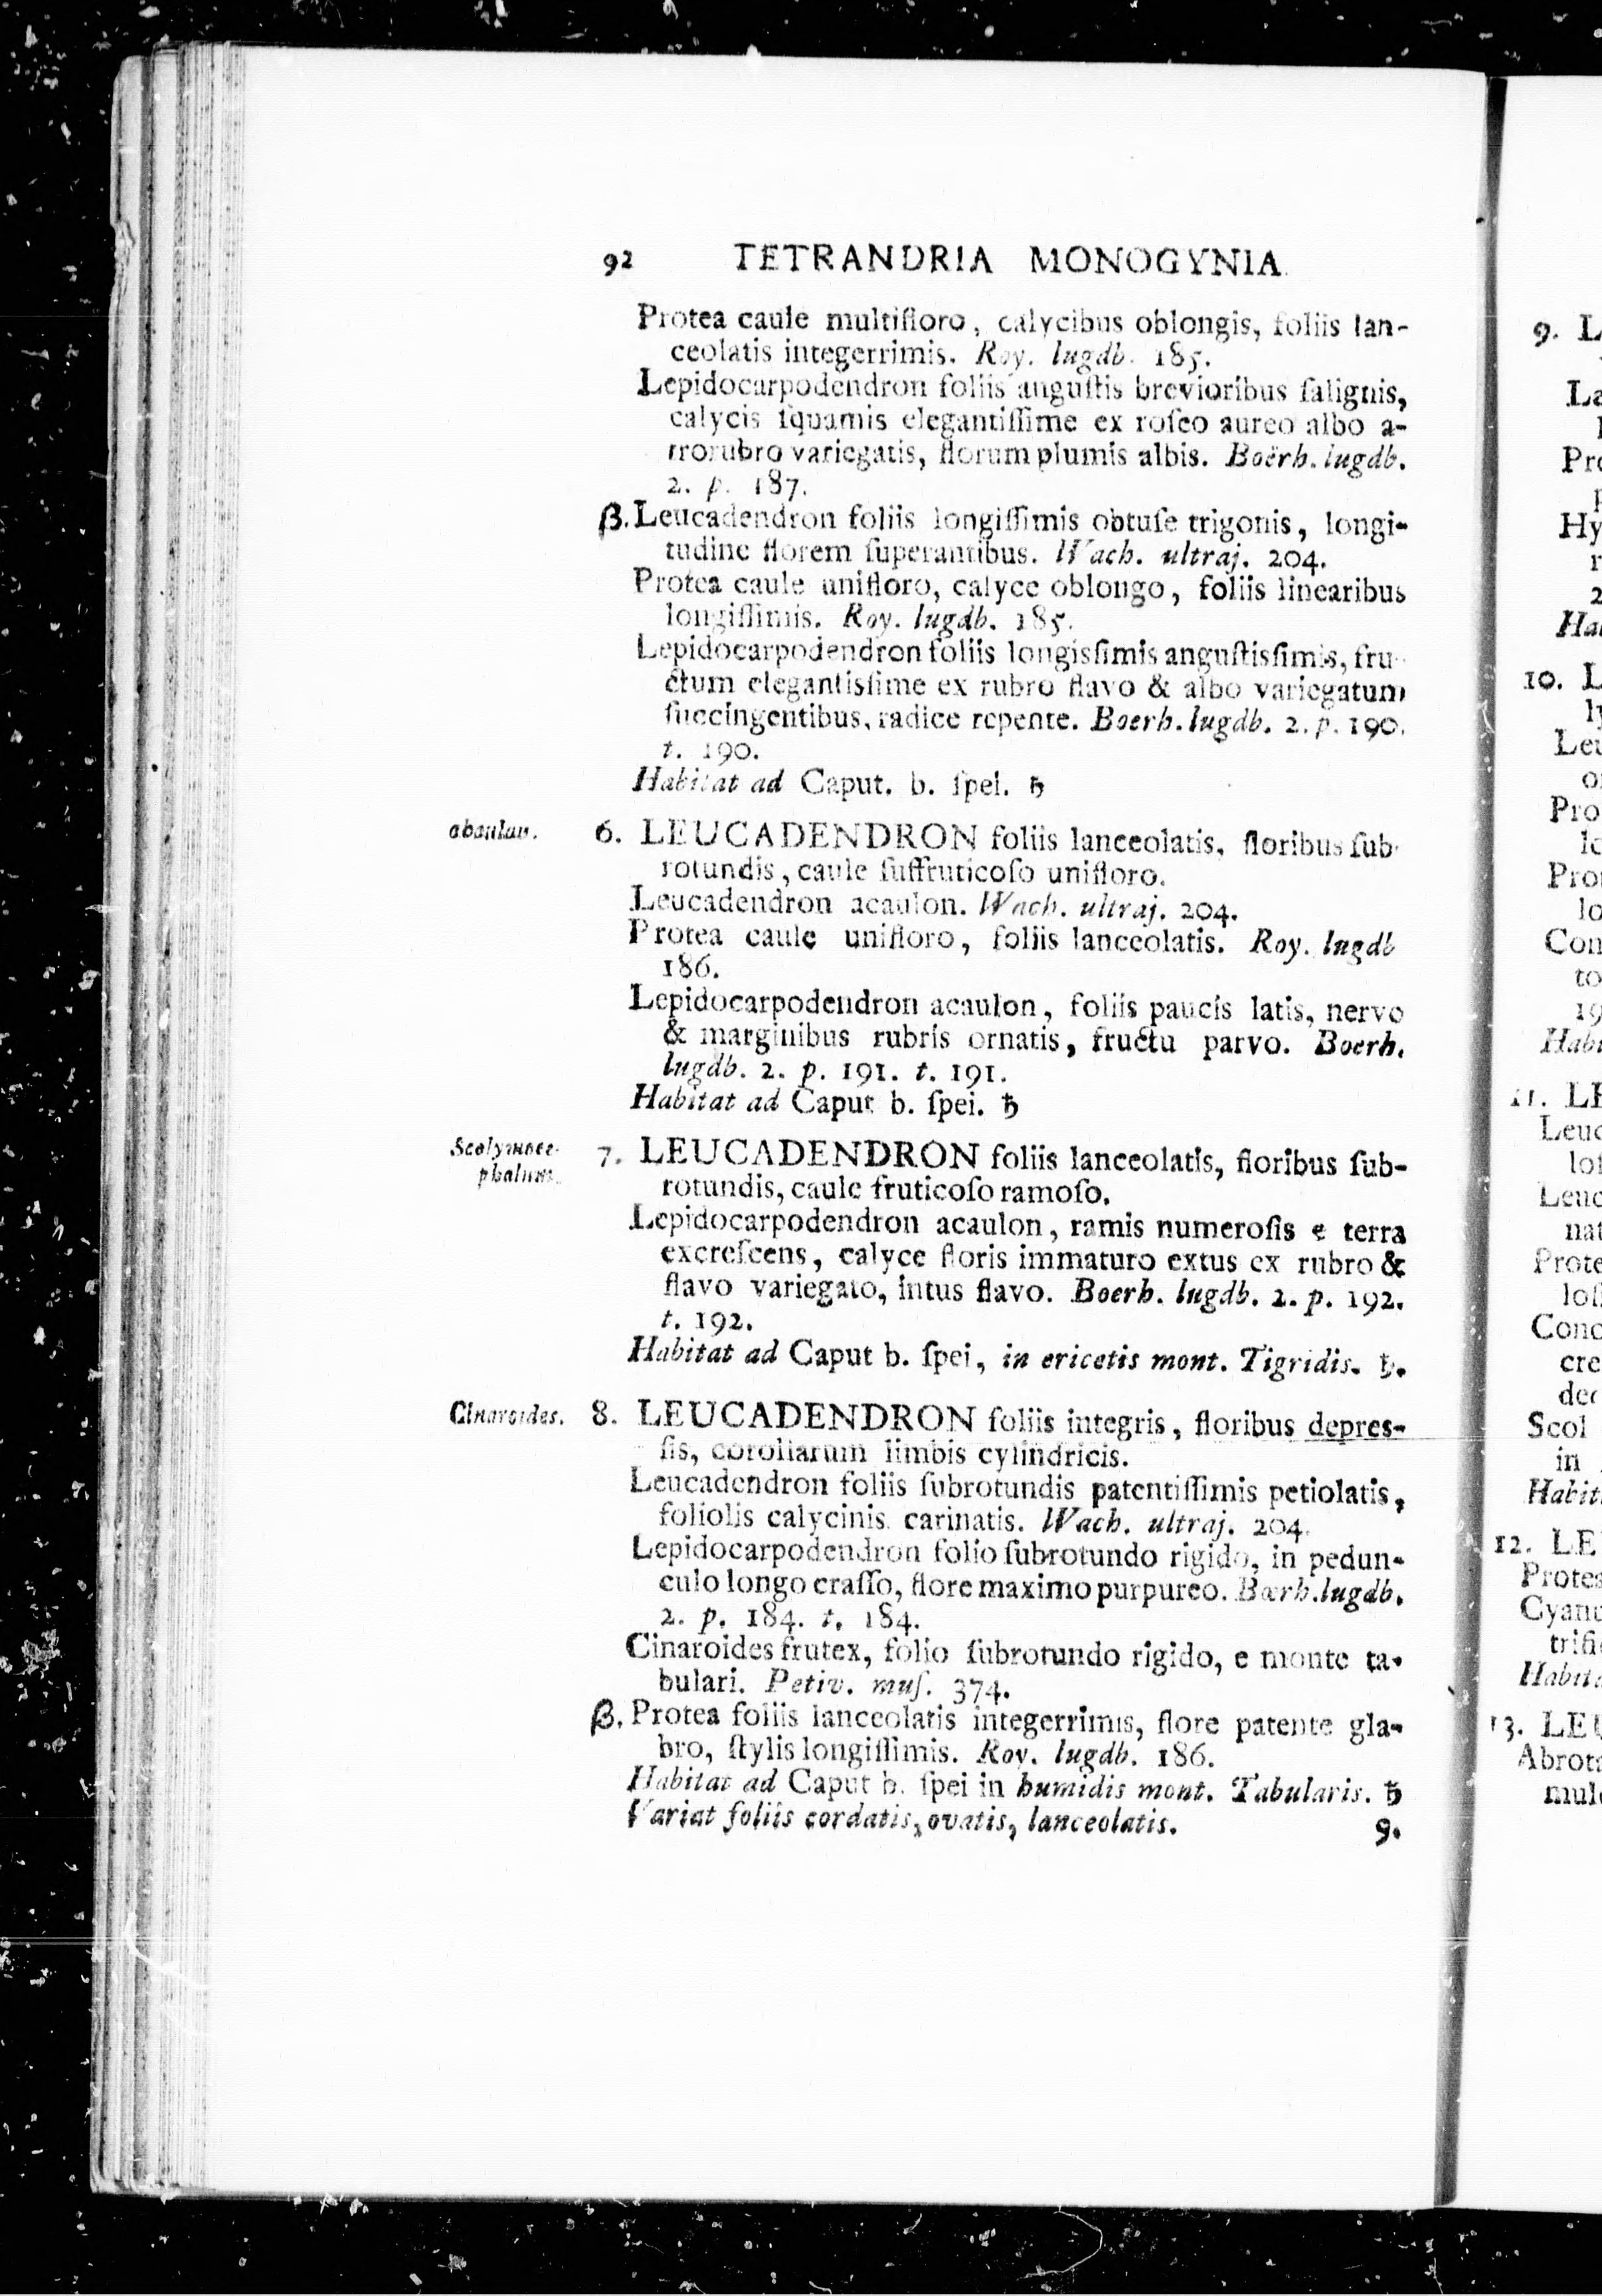 92 TETRANDRIA MONOGYNIA.
Protea caule multifloro, calycibus oblongis, foliis lan-
ceolatis integerrimis. Roy. lugdb. 185.
Lepidocarpodendron foliis anguſtis brevioribus ſalignis,
calycis ſquamis elegantiſſime ex roſeo aureo albo a-
trorubro variegatis, florum plumis albis. Boërh. lugdb.
2. p. 187.
β. Leucadendron foliis longiſſimis obtuſe trigonis, longi-
tudine florem ſuperantibus. Wach. ultraj. 204.
Protea caule unifloro, calyce oblongo, foliis linearibus
longiſſimis. Roy. lugdb. 185.
Lepidocarpodendron foliis longisſimis anguſtisſimis, fru-
ctum elegantisſime ex rubro flavo & albo variegatum
ſuccingentibus, radice repente. Boerh. lugdb. 2. p. 190.
t. 190.
Habitat ad Caput. b. ſpei. ♄
acaulon. 6. LEUCADENDRON foliis lanceolatis, floribus ſub-
rotundis, caule ſuffruticoſo unifloro.
Leucadendron acaulon. Wach. ultraj. 204.
Protea caule unifloro, foliis lanceolatis. Roy. lugdb
186.
Lepidocarpodendron acaulon, foliis paucis latis, nervo
& marginibus rubris ornatis, fructu parvo. Boerh.
lugdb. 2. p. 191. t. 191.
Habitat ad Caput b. ſpei. ♄
Scolymoce-
phalum. 7. LEUCADENDRON foliis lanceolatis, floribus ſub-
rotundis, caule fruticoſo ramoſo.
Lepidocarpodendron acaulon, ramis numeroſis e terra
excreſcens, calyce floris immaturo extus ex rubro &
flavo variegato, intus flavo. Boerh. lugdb. 2. p. 192.
t. 192.
Habitat ad Caput b. ſpei, in ericetis mont. Tigridis. ♄.
Cinaroides. 8. LEUCADENDRON foliis integris, floribus depres-
ſis, corollarum limbis cylindricis.
Leucadendron foliis ſubrotundis patentiſſimis petiolatis,
foliolis calycinis carinatis. Wach. ultraj. 204.
Lepidocarpodendron folio ſubrotundo rigido, in pedun-
culo longo craſſo, flore maximo purpureo. Bœrh. lugdb.
2. p. 184. t. 184.
Cinaroides frutex, folio ſubrotundo rigido, e monte ta-
bulari. Petiv. muſ. 374.
β. Protea foliis lanceolatis integerrimis, flore patente gla-
bro, ſtylis longiſſimis. Roy. lugdb. 186.
Habitat ad Caput b. ſpei in humidis mont. Tabularis. ♄
Variat foliis cordatis, ovatis, lanceolatis.
9.
9. L
La
Pro
Hy
2
Hab
10. L
ly
Leu
Pro
lo
Pro
lo
Con
to
19
Habi
11. LE
Leuc
loſ
Leuc
nat
Prote
loſ
Conc
cre
dec
Scol
in
Habit
12. LE
Protea
trifi
Habita
13. LEU
Abrot
mul